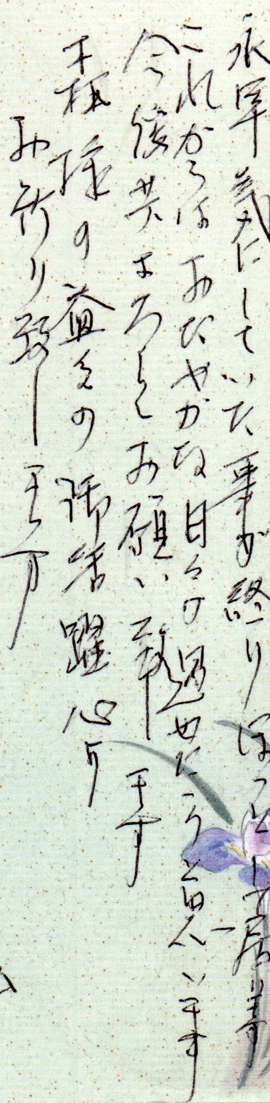 永年気にしていた事が終りほっとして居ます
これからはおだやかな日々が過せたらと思います
今後共よろしくお願い致します
王様の益々の御活躍心より
お祈り致します